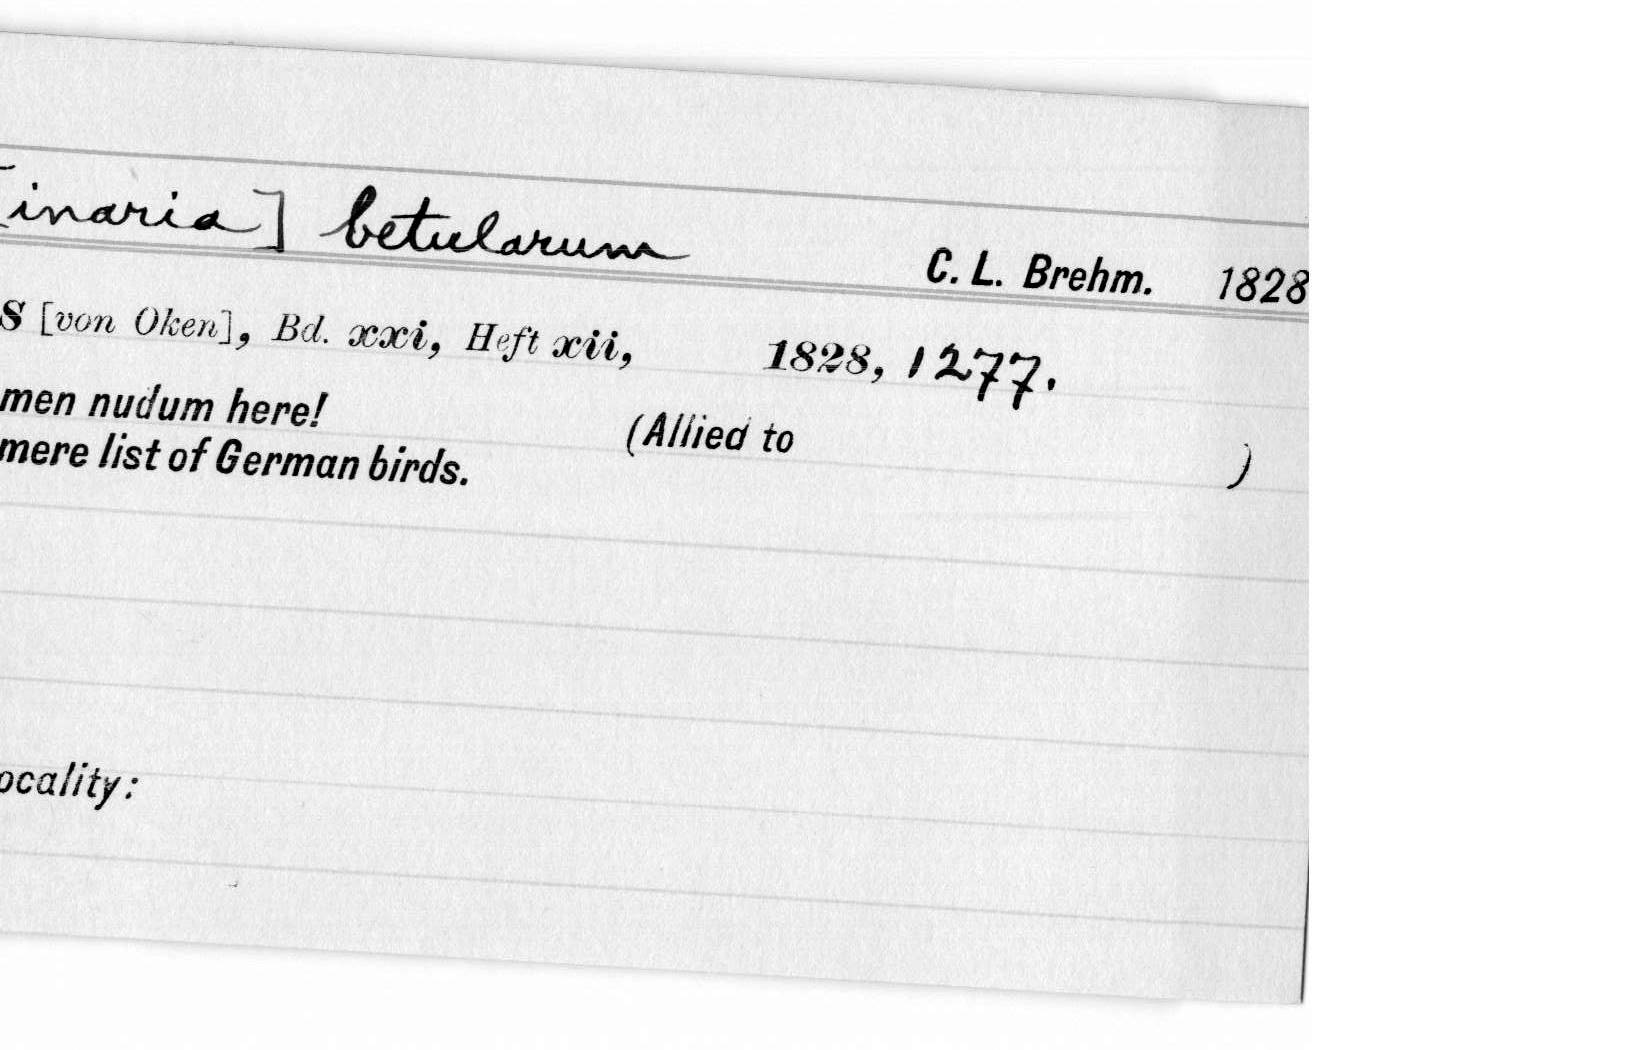 [inaria] betularum C. L. Brehm. 1828
s [von Oken], Bd. xxi, Heft xii, 1828, 1277.
men nudum here! (Allied to )
mere list of German birds.
ocality: